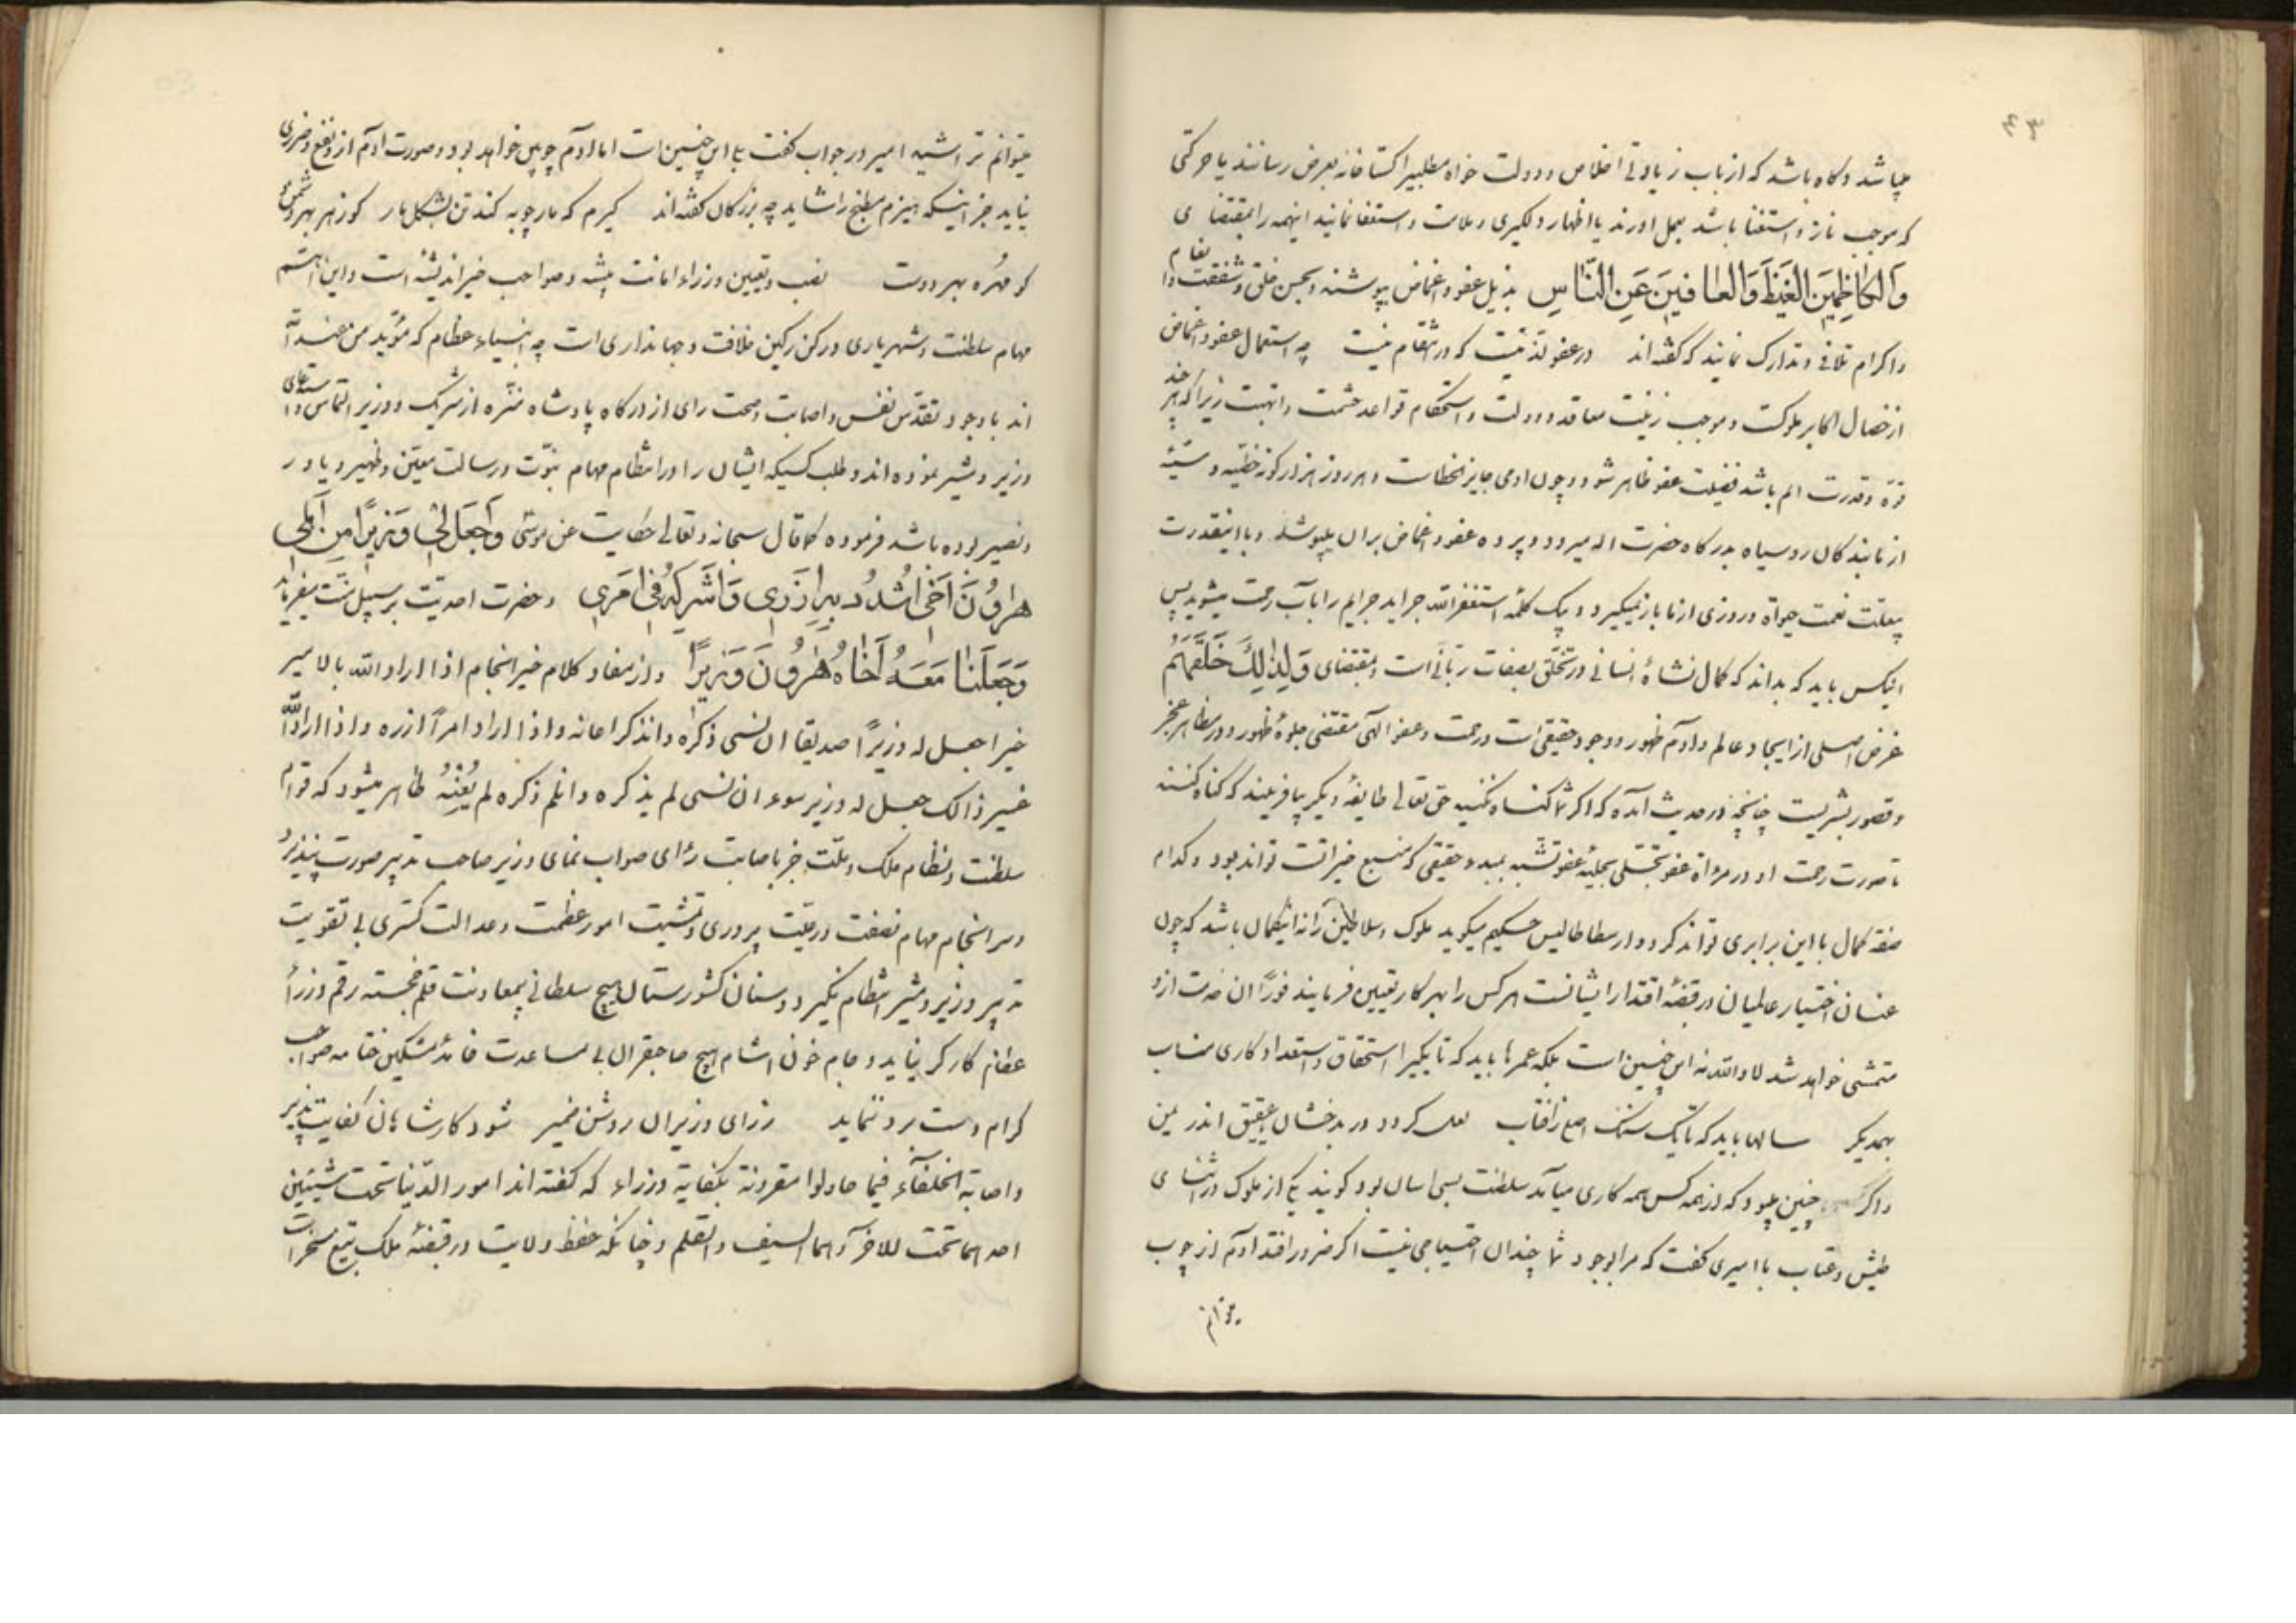 ۴۳
میباشد و گاه باشد که از باب زیادتی اخلاص و دولت خواه مطلبیرا گستاخانه بعرض رسانند یا حرکتی
که موجب ناز و استغنا باشد بعمل اورند یا اظهار دلگیری و ملامت و استعفا نمایند اینهمه را بمقتضای
وَالْكَاظِمِينَ الْغَيْظَ وَالْعَافِينَ عَنِ النَّاسِ بذیل عفو و اغماض پوشند و بحسن خلق و شفقت و انعام
و اکرام تلافی و تدارک نمایند که گفته‌اند در عفو لذتیست که در انتقام نیست چه استعمال عفو و اغماض
از خصال اکابر ملوکست و موجب زینت معاقد دولت و استحکام قواعد حشمت و ابهت زیرا که هر چند
قوة و قدرت اتم باشد فضیلت عفو ظاهر شود و چون ادمی جایز الخطاست و هر روز هزار گونه خطیئه و سیئه
از ما بندگان روسیاه بدرگاه حضرت اله میرود و پرده عفو و اغماض بران میپوشد و با اینقدرت
بعلت نعمت حیوة و روزی از ما باز نمیگیرد و بیک کلمهٔ استغفر الله جراید جرایم را بآب رحمت میشوید پس
انیکس باید که بداند که کمال نشاهٔ انسانی در تخلق بصفات ربانی است و بمقتضای وَلِذٰلِكَ خَلَقَهُمْ
غرض اصلی از ایجاد عالم و ادم ظهور وجود حقیقی است و رحمت و عفو الهی مقتضی جلوهٔ ظهور در مظاهر عجز
و قصور بشریت چنانچه در حدیث آمده که اگر شما گناه نکنید حق تعالی طایفهٔ دیگر بیافریند که گناه کنند
تا صورت رحمت او در مرءاة عفو تجلی بحلیهٔ عفو تشبه بمبدء حقیقی که منبع خیراتست تواند بود و کدام
صفة کمال با این برابری تواند کرد و ارسطاطالیس حکیم میگوید ملوک و سلاطین را نه اینکمال باشد که چون
عنان اختیار عالمیان در قبضهٔ اقتدار ایشانست هر کس را بهر کار تعیین فرمایند فوراً ان خدمت ازو
متمشی خواهد شد لا والله نه این چنین است بلکه عمرها باید که تا یکیرا استحقاق و استعداد کاری مناسب
بهمدیگر سالها باید که تا یک سنگ اصلی ز افتاب لعل گردد در بدخشان یا عقیق اندر یمن
و اگر چنین میبود که از همه کس همه کاری میآمد سلطنت بسی اسان بود گویند یکی از ملوک در اثنای
طیش و عتاب با امیری گفت که مرا بوجود شما چندان احتیاجی نیست اگر ضرور افتد ادم از چوب
میتوانم
میتوانم تراشید امیر در جواب گفت بلی این چنین است اما ادم چوبین خواهد بود و صورت ادم ازو نفع و ضرری
نیاید جز اینکه هیزم مطبخ را شاید چه بزرگان گفته‌اند گیرم که مارچوبه کند تن بشکل مار کو زهر بهر دشمن
کو مهره بهر دوست نصب و تعیین وزراء امانت پیشه و صواحب خیر اندیشه است و این اهم
مهام سلطنت و شهریاری و رکن رکین خلافت و جهانداری است چه انبیاء عظام که مؤید من عند الله
اند با وجود تقدس نفس و اصابت و صحت رای از درگاه پادشاه منزه از شریک و وزیر التماس و استدعای
وزیر و مشیر نموده‌اند و طلب کسیکه ایشان را در انتظام مهام نبوت و رسالت معین و ظهیر و یاور
و نصیر بوده باشد فرموده کما قال سبحانه و تعالی حکایت عن موسی وَاجْعَلْ لِي وَزِيرًا مِنْ أَهْلِي
هٰرُونَ أَخِي اشْدُدْ بِهِ أَزْرِي وَأَشْرِكْهُ فِي أَمْرِي و حضرت احدیت بر سبیل منت میفرماید
وَجَعَلْنَا مَعَهُ أَخَاهُ هٰرُونَ وَزِيرًا و از مفاد کلام خیر انجام اذا اراد الله بالامیر
خیرا جعل له وزیراً صدیقا ان نسی ذکره و ان ذکر اعانه و اذا اراد
غیر ذالک جعل له وزیر سوء ان نسی لم یذکره و ان ذکره لم یُعِنْهُ ظاهر میشود که قوام
سلطنت و نظام ملک و ملت جز باصابت رای صواب نمای وزیر صاحب تدبیر صورت پذیر
و سرانجام مهام نصفت و رعیت پروری و تمشیت امور عظمت و عدالت گستری بی تقویت
تدبیر وزیر و مشیر انتظام نگیرد و سنان کشورستان هیچ سلطانی بی معاونت قلم خجسته رقم وزراء
عظام کارگر نیاید و جام خون اشام هیچ صاحبقران بی مساعدت خامهٔ مشکین ختامه صواحب
کرام دست برد ننماید ز رای وزیران روشن ضمیر شود کار شاهان کفایت پذیر
و اصابة الخلفاء فیما حاولوا مقرونة بکفایة وزراء که گفته اند امور الدنیا تحت شیئین
احدهما تحت الاخر و هما السیف و القلم و چنانکه حفظ ولایت در قبضهٔ ملک تیغ